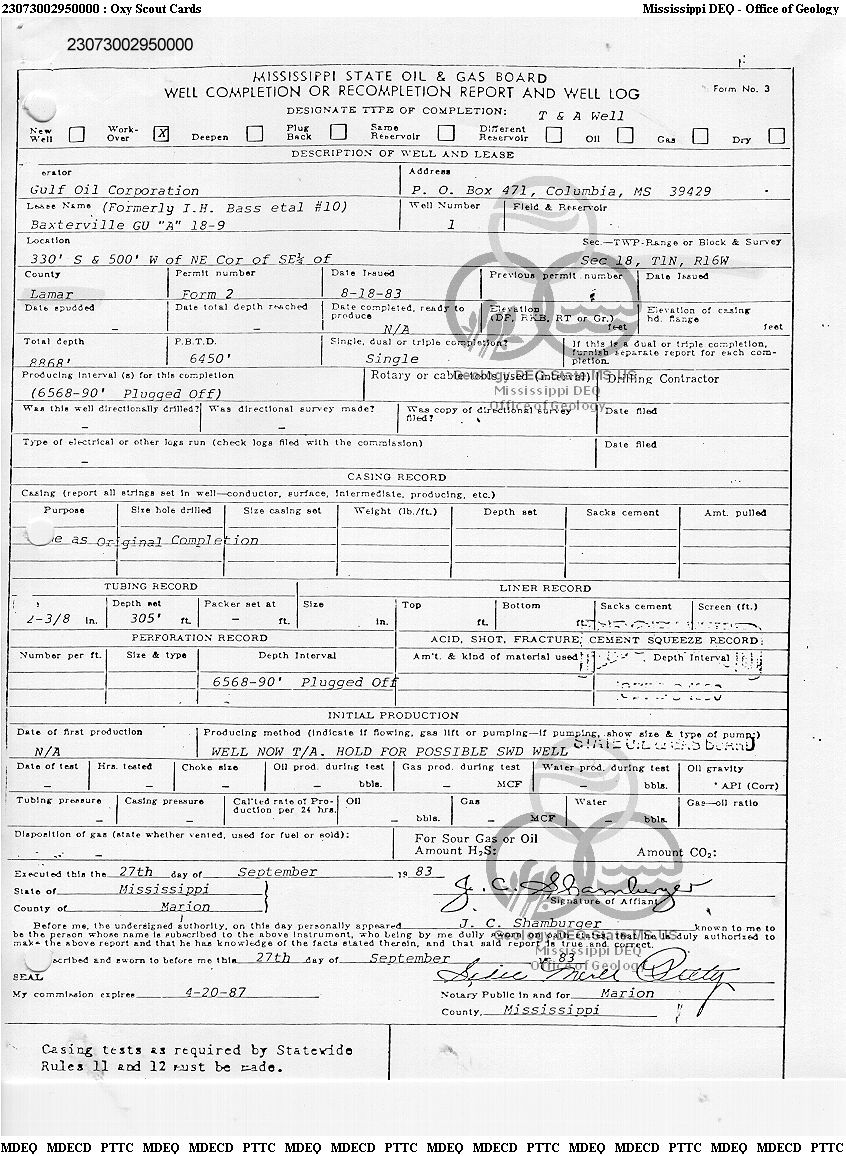 23073002950000 : Oxy Scout Cards Mississippi DEQ - Office of Geology
23073002950000
MISSISSIPPI STATE OIL & GAS BOARD
WELL COMPLETION OR RECOMPLETION REPORT AND WELL LOG Form No. 3
DESIGNATE TYPE OF COMPLETION: T & A Well
New Well Work-Over X Deepen Plug Back Same Reservoir Different Reservoir Oil Gas Dry
DESCRIPTION OF WELL AND LEASE
erator Address
Gulf Oil Corporation P. O. Box 471, Columbia, MS 39429
Lease Name (Formerly I.H. Bass etal #10) Well Number Field & Reservoir
Baxterville GU "A" 18-9 1
Location Sec.—TWP-Range or Block & Survey
330' S & 500' W of NE Cor of SE¼ of Sec 18, T1N, R16W
County Permit number Date Issued Previous permit number Date Issued
Lamar Form 2 8-18-83
Date spudded Date total depth reached Date completed, ready to produce Elevation (DF, RKB, RT or Gr.) feet Elevation of casing hd. flange feet
- - N/A
Total depth P.B.T.D. Single, dual or triple completion? If this is a dual or triple completion, furnish separate report for each completion.
8868' 6450' Single
Producing interval (s) for this completion Rotary or cable tools used (interval) Drilling Contractor
(6568-90' Plugged Off)
Geology.DEQ.State.MS.US
Mississippi DEQ
Office of Geology
Was this well directionally drilled? Was directional survey made? Was copy of directional survey filed? Date filed
- -
Type of electrical or other logs run (check logs filed with the commission) Date filed
-
CASING RECORD
Casing (report all strings set in well—conductor, surface, intermediate, producing, etc.)
Purpose Size hole drilled Size casing set Weight (lb./ft.) Depth set Sacks cement Amt. pulled
e as Original Completion
TUBING RECORD LINER RECORD
Depth set Packer set at Size Top Bottom Sacks cement Screen (ft.)
2-3/8 in. 305' ft. - ft. in. ft. ft.
PERFORATION RECORD ACID, SHOT, FRACTURE, CEMENT SQUEEZE RECORD
Number per ft. Size & type Depth Interval Am't. & kind of material used Depth Interval
6568-90' Plugged Off
INITIAL PRODUCTION
Date of first production Producing method (indicate if flowing, gas lift or pumping—if pumping, show size & type of pump:)
N/A WELL NOW T/A. HOLD FOR POSSIBLE SWD WELL STATE OIL & GAS BOARD
Date of test Hrs. tested Choke size Oil prod. during test Gas prod. during test Water prod. during test Oil gravity
- - - - bbls. - MCF - bbls. ° API (Corr)
Tubing pressure Casing pressure Cal'ted rate of Production per 24 hrs. Oil Gas Water Gas—oil ratio
- - - bbls. - MCF - bbls.
Disposition of gas (state whether vented, used for fuel or sold): For Sour Gas or Oil
- Amount H₂S: Amount CO₂:
Executed this the 27th day of September 19 83
State of Mississippi J. C. Shamburger
Signature of Affiant
County of Marion
Before me, the undersigned authority, on this day personally appeared J. C. Shamburger known to me to
be the person whose name is subscribed to the above instrument, who being by me dully sworn on oath states, that he is duly authorized to
make the above report and that he has knowledge of the facts stated therein, and that said report is true and correct.
Geology.DEQ.State.MS.US
Mississippi DEQ
Office of Geology
scribed and sworn to before me this 27th day of September 83
SEAL
My commission expires 4-20-87 Notary Public in and for Marion
County, Mississippi
Casing tests as required by Statewide
Rules 11 and 12 must be made.
MDEQ MDECD PTTC MDEQ MDECD PTTC MDEQ MDECD PTTC MDEQ MDECD PTTC MDEQ MDECD PTTC MDEQ MDECD PTTC